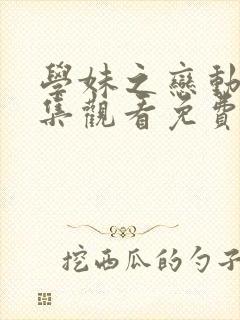 學妹之戀動
集觀看免費
挖西瓜的勺子